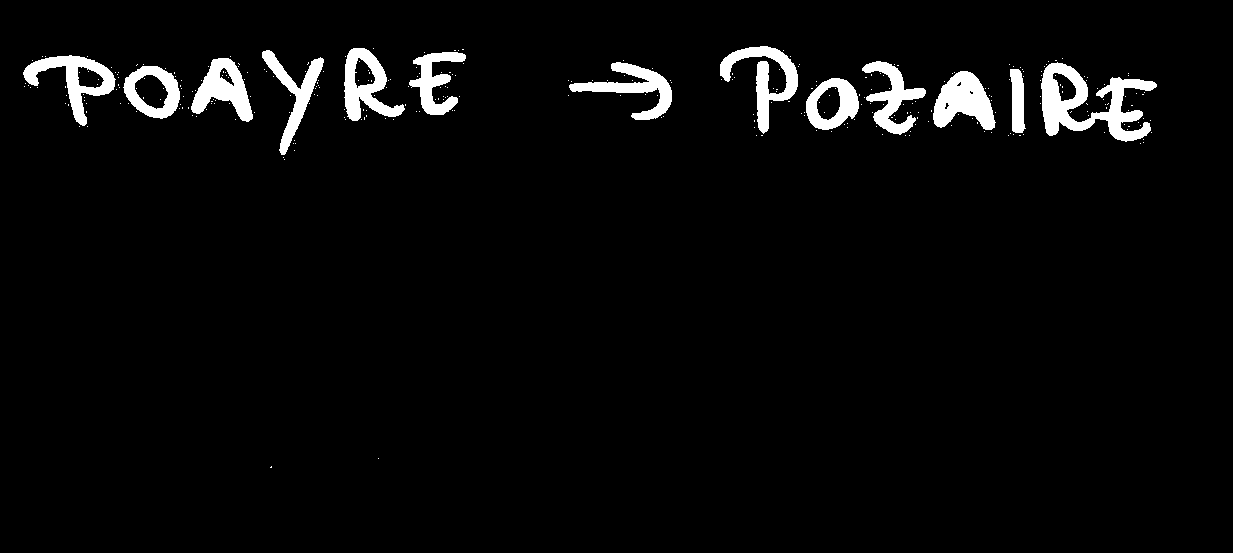 POAYRE → POZAIRE